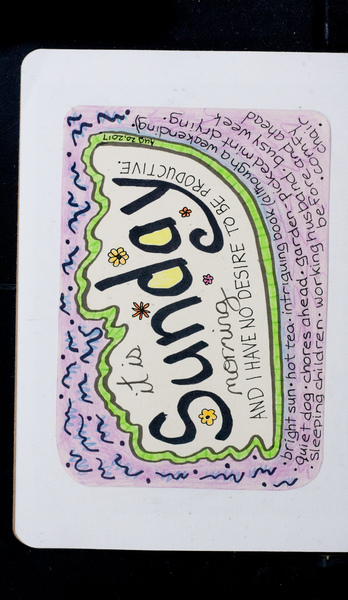 it is
Sunday
morning
AND I HAVE NO DESIRE TO BE PRODUCTIVE.
AUG 20, 2017
bright sun · hot tea · intriguing book (although a weakending)
quiet dog · chores ahead · garden picked mint drying ·
· sleeping children · working husband busy week
before and ahead